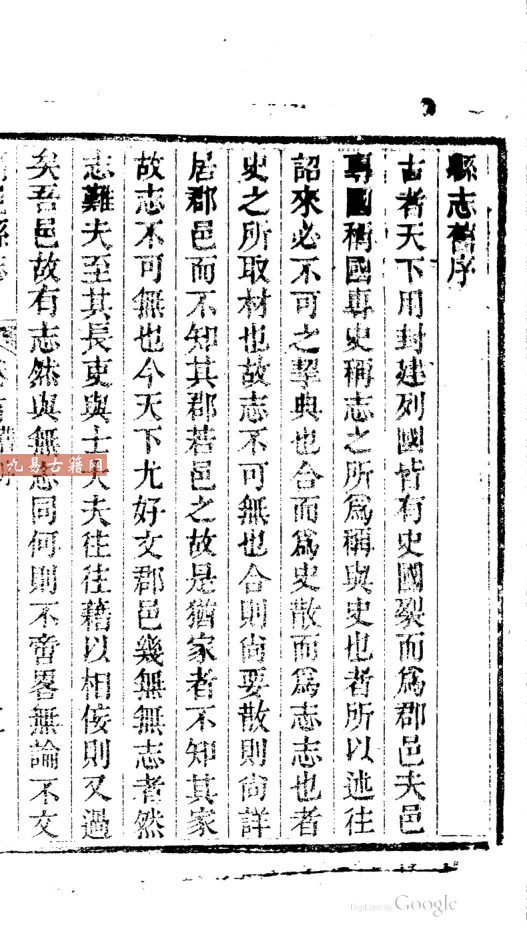 縣志舊序
古者天下用封建列國皆有史國裂而爲郡邑夫邑
專國稱國專史稱志之所爲稱與史也者所以述往
詔來必不可之挈典也合而爲史散而爲志志也者
史之所取材也故志不可無也合則尚要散則尚詳
居郡邑而不知其郡若邑之故是猶家者不知其家
故志不可無也今天下尤好文郡邑幾無無志者然
志難夫至其長吏與士大夫往往藉以相侫則又過
矣吾邑故有志然與無志同何則不啻畧無論不文
縣
九易古籍网
Digitized by Google